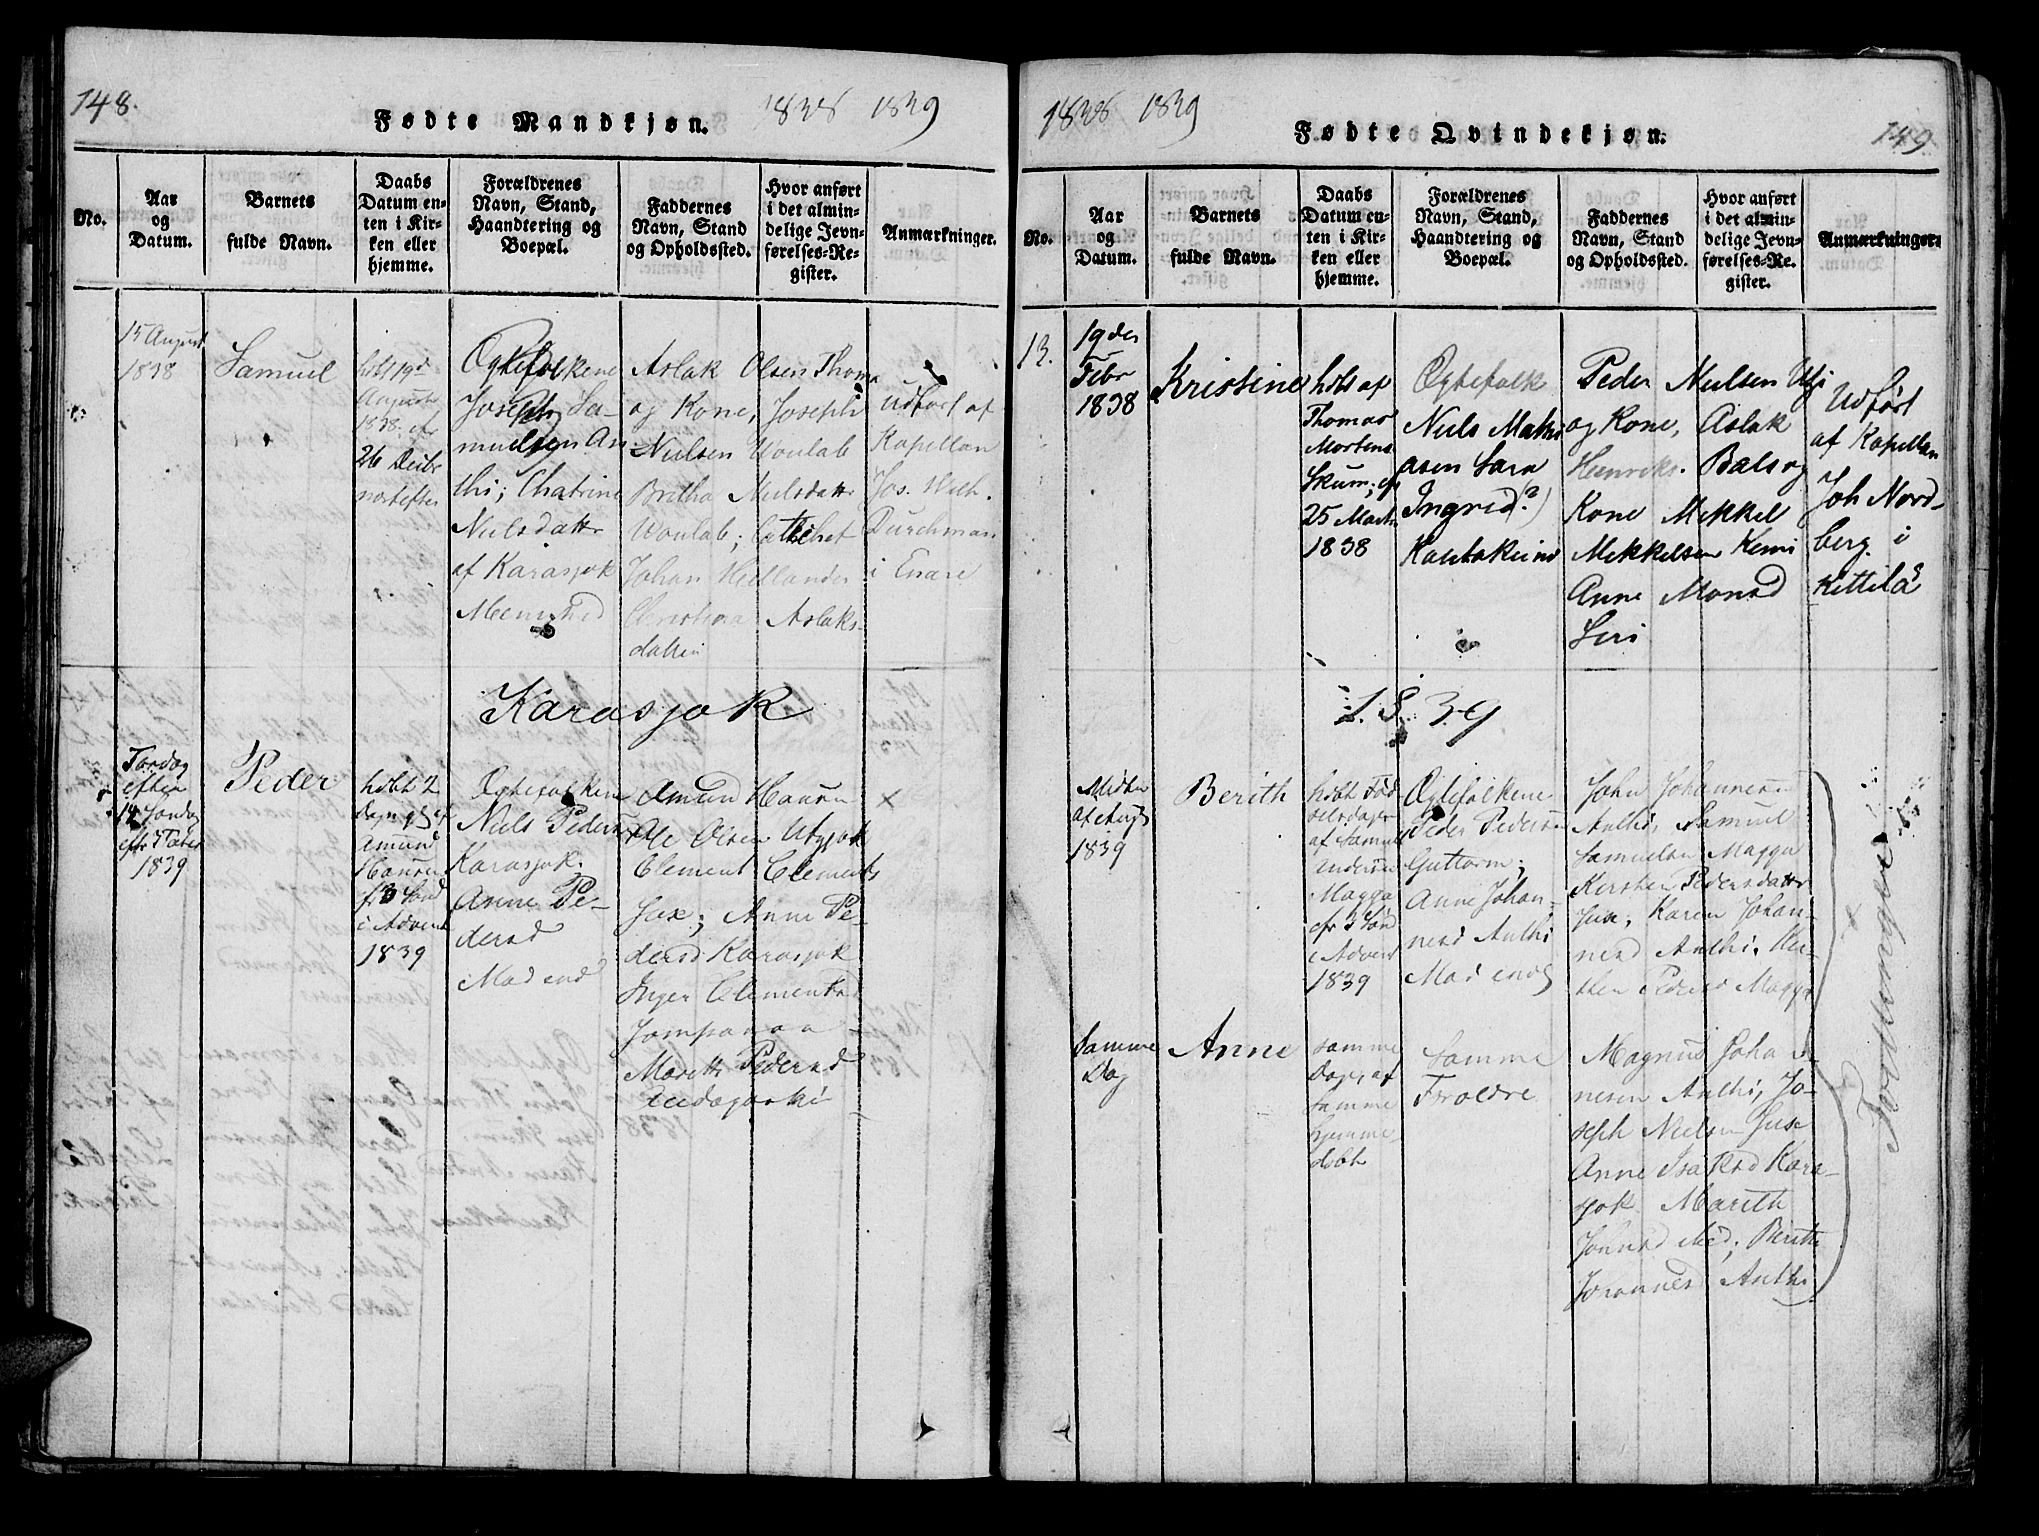 148.
Fødte Mandkjøn.
1838 1839
No.
Aar
og
Datum.
Barnets
fulde Navn.
Daabs
Datum en-
ten i Kir-
ken eller
hjemme.
Forældrenes
Navn, Stand,
Haandtering og
Boepæl.
Faddernes
Navn, Stand
og Opholdssted.
Hvor anført
i det almin-
delige Jevn-
førelses-Re-
gister.
Anmærkninger.
15 August
1838
Samuel
hdbt 19d
August
1838. efr
26 Decbr
Ogtefolkene
Joseph Sa-
muelsen An
thi; Chatrine
Nielsdattr
af Karasjok
Aslak Olsen Thoma
og Kone, Joseph
Nielsen Woulab
Britha Nielsdattr
Woulab; Cattechet
Johan Hellander
Christina Aslaks-
datter
Udført af
Kapellan
Jos. Wilh.
Durchman
i Enare
Karasjok
Tirsdag
efter
14 Søndag
efr
1839
Peder
hdbt 2
Dage g. af
Amund
Hansen
3 Sønd
i Advent
1839
Ogtefolkene
Niels Peders
Karasjok.
Anne Pe-
dersd
Amund Hansen
Ole Olsen Utzjok
Clement Clements
Jux; Anne Pe-
dersd Karasjok
Inger Clementsd
Marett Pedersd
1838 1839
Fødte Qvindekjøn.
149.
No.
Aar
og
Datum.
Barnets
fulde Navn.
Daabs
Datum en-
ten i Kir-
ken eller
hjemme.
Forældrenes
Navn, Stand,
Haandtering og
Boepæl.
Faddernes
Navn, Stand
og Opholdssted.
Hvor anført
i det almin-
delige Jevn-
førelses-Re-
gister.
Anmærkninger.
13.
19 des
Febr
1838
Kristine
hdbt af
Thomas
Mortens
Skum; efr
25 Marts
1838
Ogtefolk
Niels Mathi
asen Sara
Ingrid (?)
Kautokeino
Peder Nielsen Utsi
og Kone, Aslak
Henriks. Bals og
Kone Mekkel
Mekkelsen Kemi
Anne Monsd
Siri
Udført
af Kapellan
Joh Nord-
berg i
Kittilä
1839
Midten
af Augs
1839
Berith
hdbt Fød-
selsdagen
af Samuel
Andersen
Magga
efr 3 Sønd
i Advent
1839
Ogtefolkene
Peder Pedersen
Guttorm;
Anne Johan-
nesd Anthi
John Johannesen
Anthi, Samuel
Samuelsen Magga
Kersten Pedersdattr
Jux, Karen Johan-
nesd Anthi, Ker-
sten Pedersd Magga
Samme
Dag
Anne
samme
Dag af
samme
hjemme-
døbt
Samme
Forældre
Magnus Johan-
nesen Anthi, Jo-
seph Nielsen Jux
Anne Isaksd Kara-
sjok Marith
Johnsd Ned; Berith
Johannes Anthi